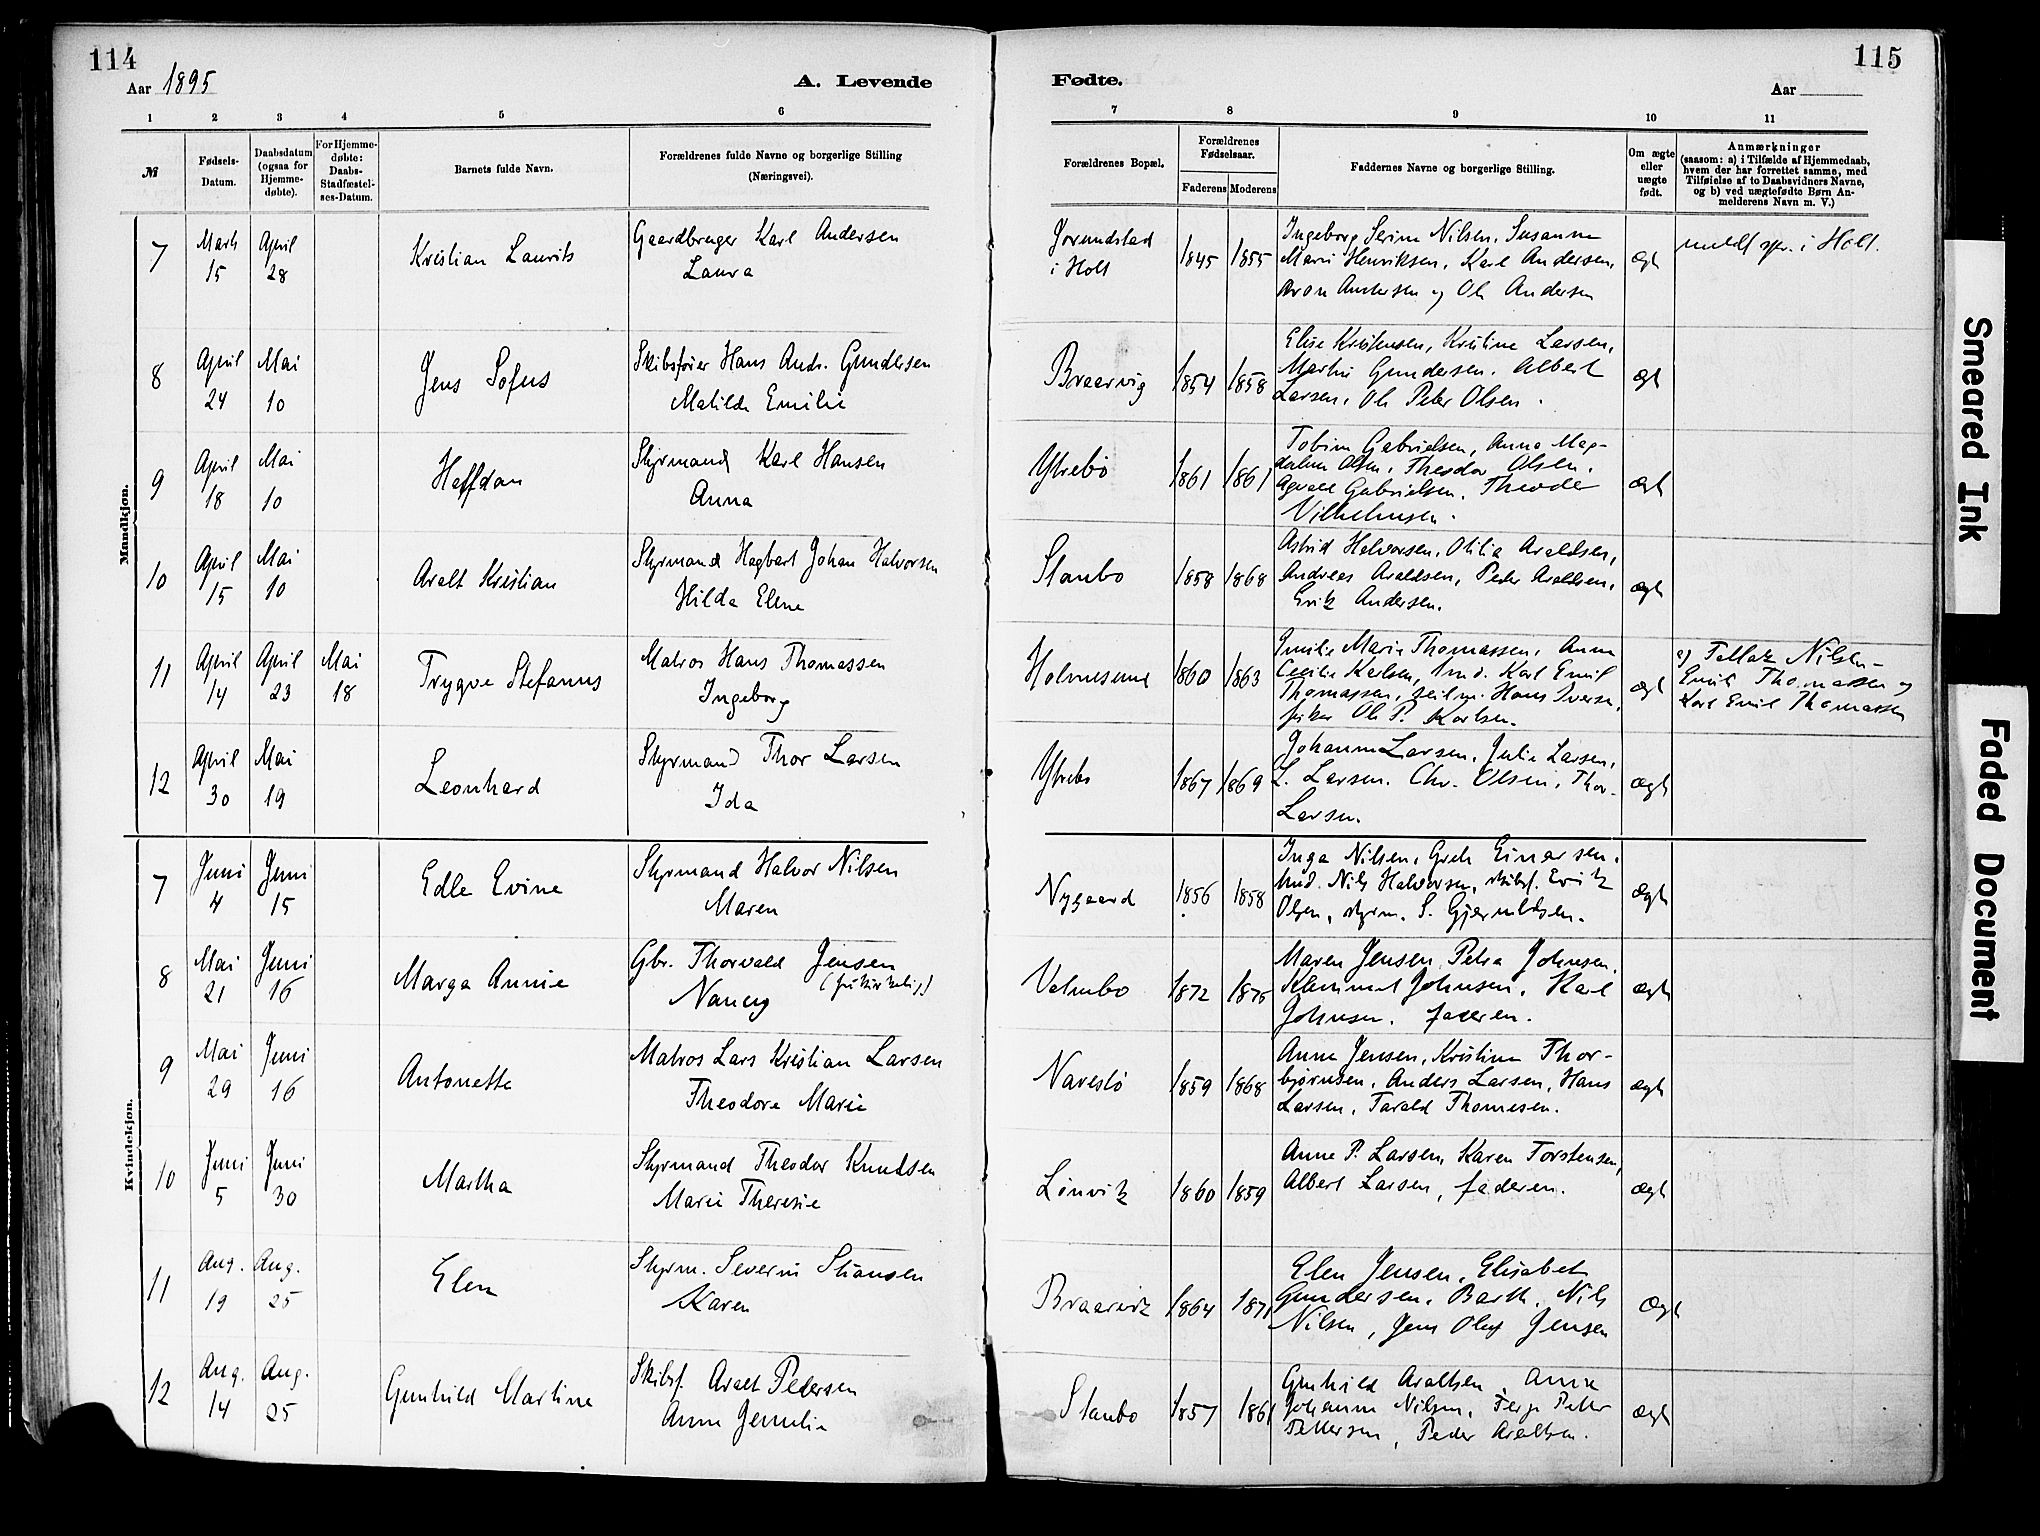 114
115
Aar 1895
A. Levende
Fødte.
Aar
1 2 3 4 5 6 7 8 9 10 11
№
Fødsels-
Datum.
Daabsdatum
(ogsaa for
Hjemme-
døbte).
For Hjemme-
døbte:
Daabs-
Stadfæstel-
ses-Datum.
Barnets fulde Navn.
Forældrenes fulde Navne og borgerlige Stilling
(Næringsvei).
Forældrenes Bopæl.
Forældrenes
Fødselsaar.
Faderens Moderens
Faddernes Navne og borgerlige Stilling.
Om ægte
eller
uægte
født.
Anmærkninger
(saasom: a) i Tilfælde af Hjemmedaab,
hvem der har forrettet samme, med
Tilføielse af to Daabsvidners Navne,
og b) ved uægtefødte Børn An-
melderens Navn m. V.)
Mandkjøn.
7
Marts
15
April
28
Kristian Laurits
Gaardbruger Karl Andersen
Laura
Jorundstad
i Holt
1845
1855
Ingeborg Serine Nilsen, Susanne
Marie Henriksen, Karl Andersen,
Aron Andersen og Ole Andersen
ægt
i Holt.
8
April
24
Mai
10
Jens Sofus
Skibsfører Hans Andr. Gundersen
Matilde Emilie
Braarvig
1854
1858
Elise Kristensen, Kristine Larsen,
Martin Gundersen. Albert
Larsen, Ole Peter Olsen.
ægt
9
April
18
Mai
10
Halfdan
Styrmand Karl Hansen
Anna
Ytrebø
1861
1861
Tobine Gabrielsen, Anna Mag-
dalene Olsen, Theodor Olsen,
Gabrielsen, Theodor
Vilhelmsen.
ægt
10
April
15
Mai
10
Aralt Kristian
Styrmand Hagbart Johan Halvorsen
Hilda Elene
Staubø
1858
1868
Astrid Halvorsen, Otilie Araldsen,
Andreas Araldsen, Peder Araldsen,
Erik Andersen.
ægt
11
April
14
April
23
Mai
18
Trygve Stefanus
Matros Hans Thomassen
Ingeborg
Holmesund
1860
1863
Emilie Marie Thomassen, Anne
Cecilie Karlsen, Karl Emil
Thomassen, Hans Iversen,
Ole P. Karlsen.
ægt
a) Tellak Nilsen -
Emil Thomassen og
Karl Emil Thomassen
12
April
30
Mai
19
Leonhard
Styrmand Thor Larsen
Ida
Ytrebø
1867
1869
Johanne Larsen, Julie Larsen,
L. Larsen. Chr. Olsen, Thor
Larsen.
ægt
Kvindekjøn.
7
Juni
4
Juni
15
Edle Evine
Styrmand Halvor Nilsen
Maren
Nygaard
1856
1858
Inga Nilsen, Grete Einarsen,
Nils Halvorsen, skibsf. Erik
Olsen, styrm. S. Gjeruldsen.
ægt
8
Mai
21
Juni
16
Marga Annie
Gbr. Thorvald Jensen
(frikirkelig)
Nancy
Valmbo
1872
1875
Maren Jensen, Petra Johnsen,
Klemmet Johnsen, Karl
Johnsen, faderen.
ægt
9
Mai
29
Juni
16
Antonette
Matros Lars Kristian Larsen
Theodore Marie
Narestø
1859
1868
Anne Jensen, Kristine Thor-
bjørnsen, Anders Larsen, Hans
Larsen, Tarald Thomesen.
ægt
10
Juni
5
Juni
30
Martha
Styrmand Theodor Knudsen
Marie Theresie
Linvik
1860
1859
Anne P. Larsen, Karen Torstensen,
Albert Larsen, faderen.
ægt
11
Aug.
19
Aug.
25
Elen
Styrm. Severin Stiansen
Karen
Braarvik
1864
1871
Elen Jensen, Elisabet
Gundersen, Barth. Nils
Nilsen, Jens Oluf Jensen
ægt
12
Aug.
14
Aug.
25
Gunhild Martine
Skibsf. Aralt Pedersen
Anne Jemilie
Staubo
1857
1861
Gunhild Araltsen, Anne
Johanne Nilsen, Terje Petter
Pettersen, Peder Araltsen.
ægt
Smeared Ink
Faded Document